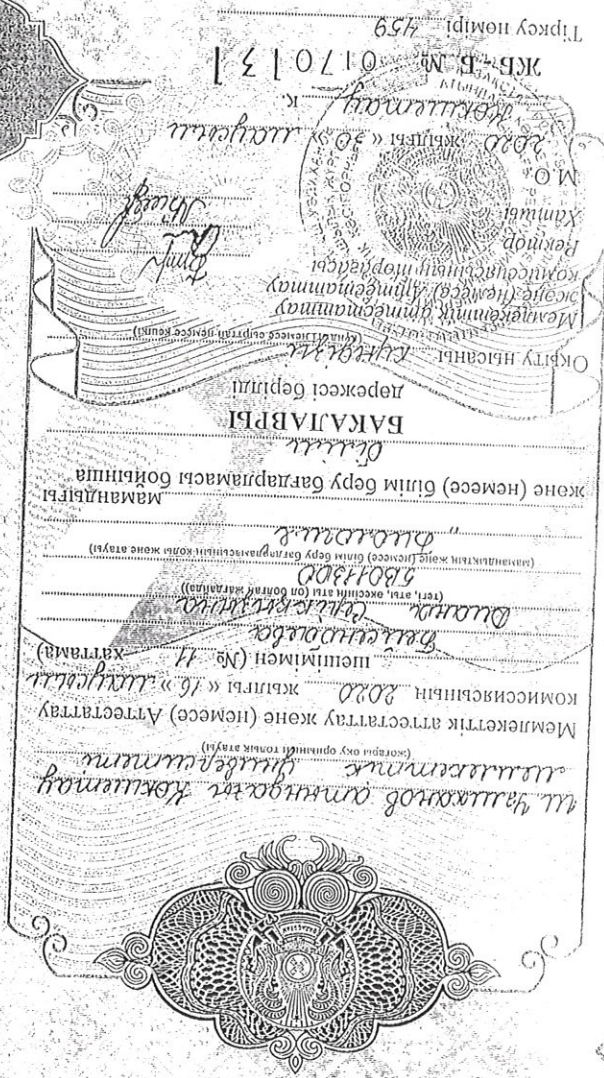 Ш. Уәлиханов атындағы Көкшетау
мемлекеттік университеті
(жоғары оқу орнының толық атауы)
Мемлекеттік аттестаттау және (немесе) Аттестаттау
комиссиясының 2020 жылғы « 16 » маусым
шешімімен (№ 11 хаттама)
Бейсенбаева
Диана Серікқызына
(тегі, аты, әкесінің аты (ол болған жағдайда))
5В011300
(мамандықтың және (немесе) білім беру бағдарламасының коды және атауы)
" Биология
мамандығы
және (немесе) білім беру бағдарламасы бойынша
білім
БАКАЛАВРЫ
дәрежесі берілді
Оқыту нысаны күндізгі
Мемлекеттік аттестаттау
және (немесе) Аттестаттау
комиссиясының төрағасы
Ректор
Хатшы
М.О.
2020 жылғы « 30 » маусым
Көкшетау қ.
ЖБ-Б № 0170131
Тіркеу нөмірі 459